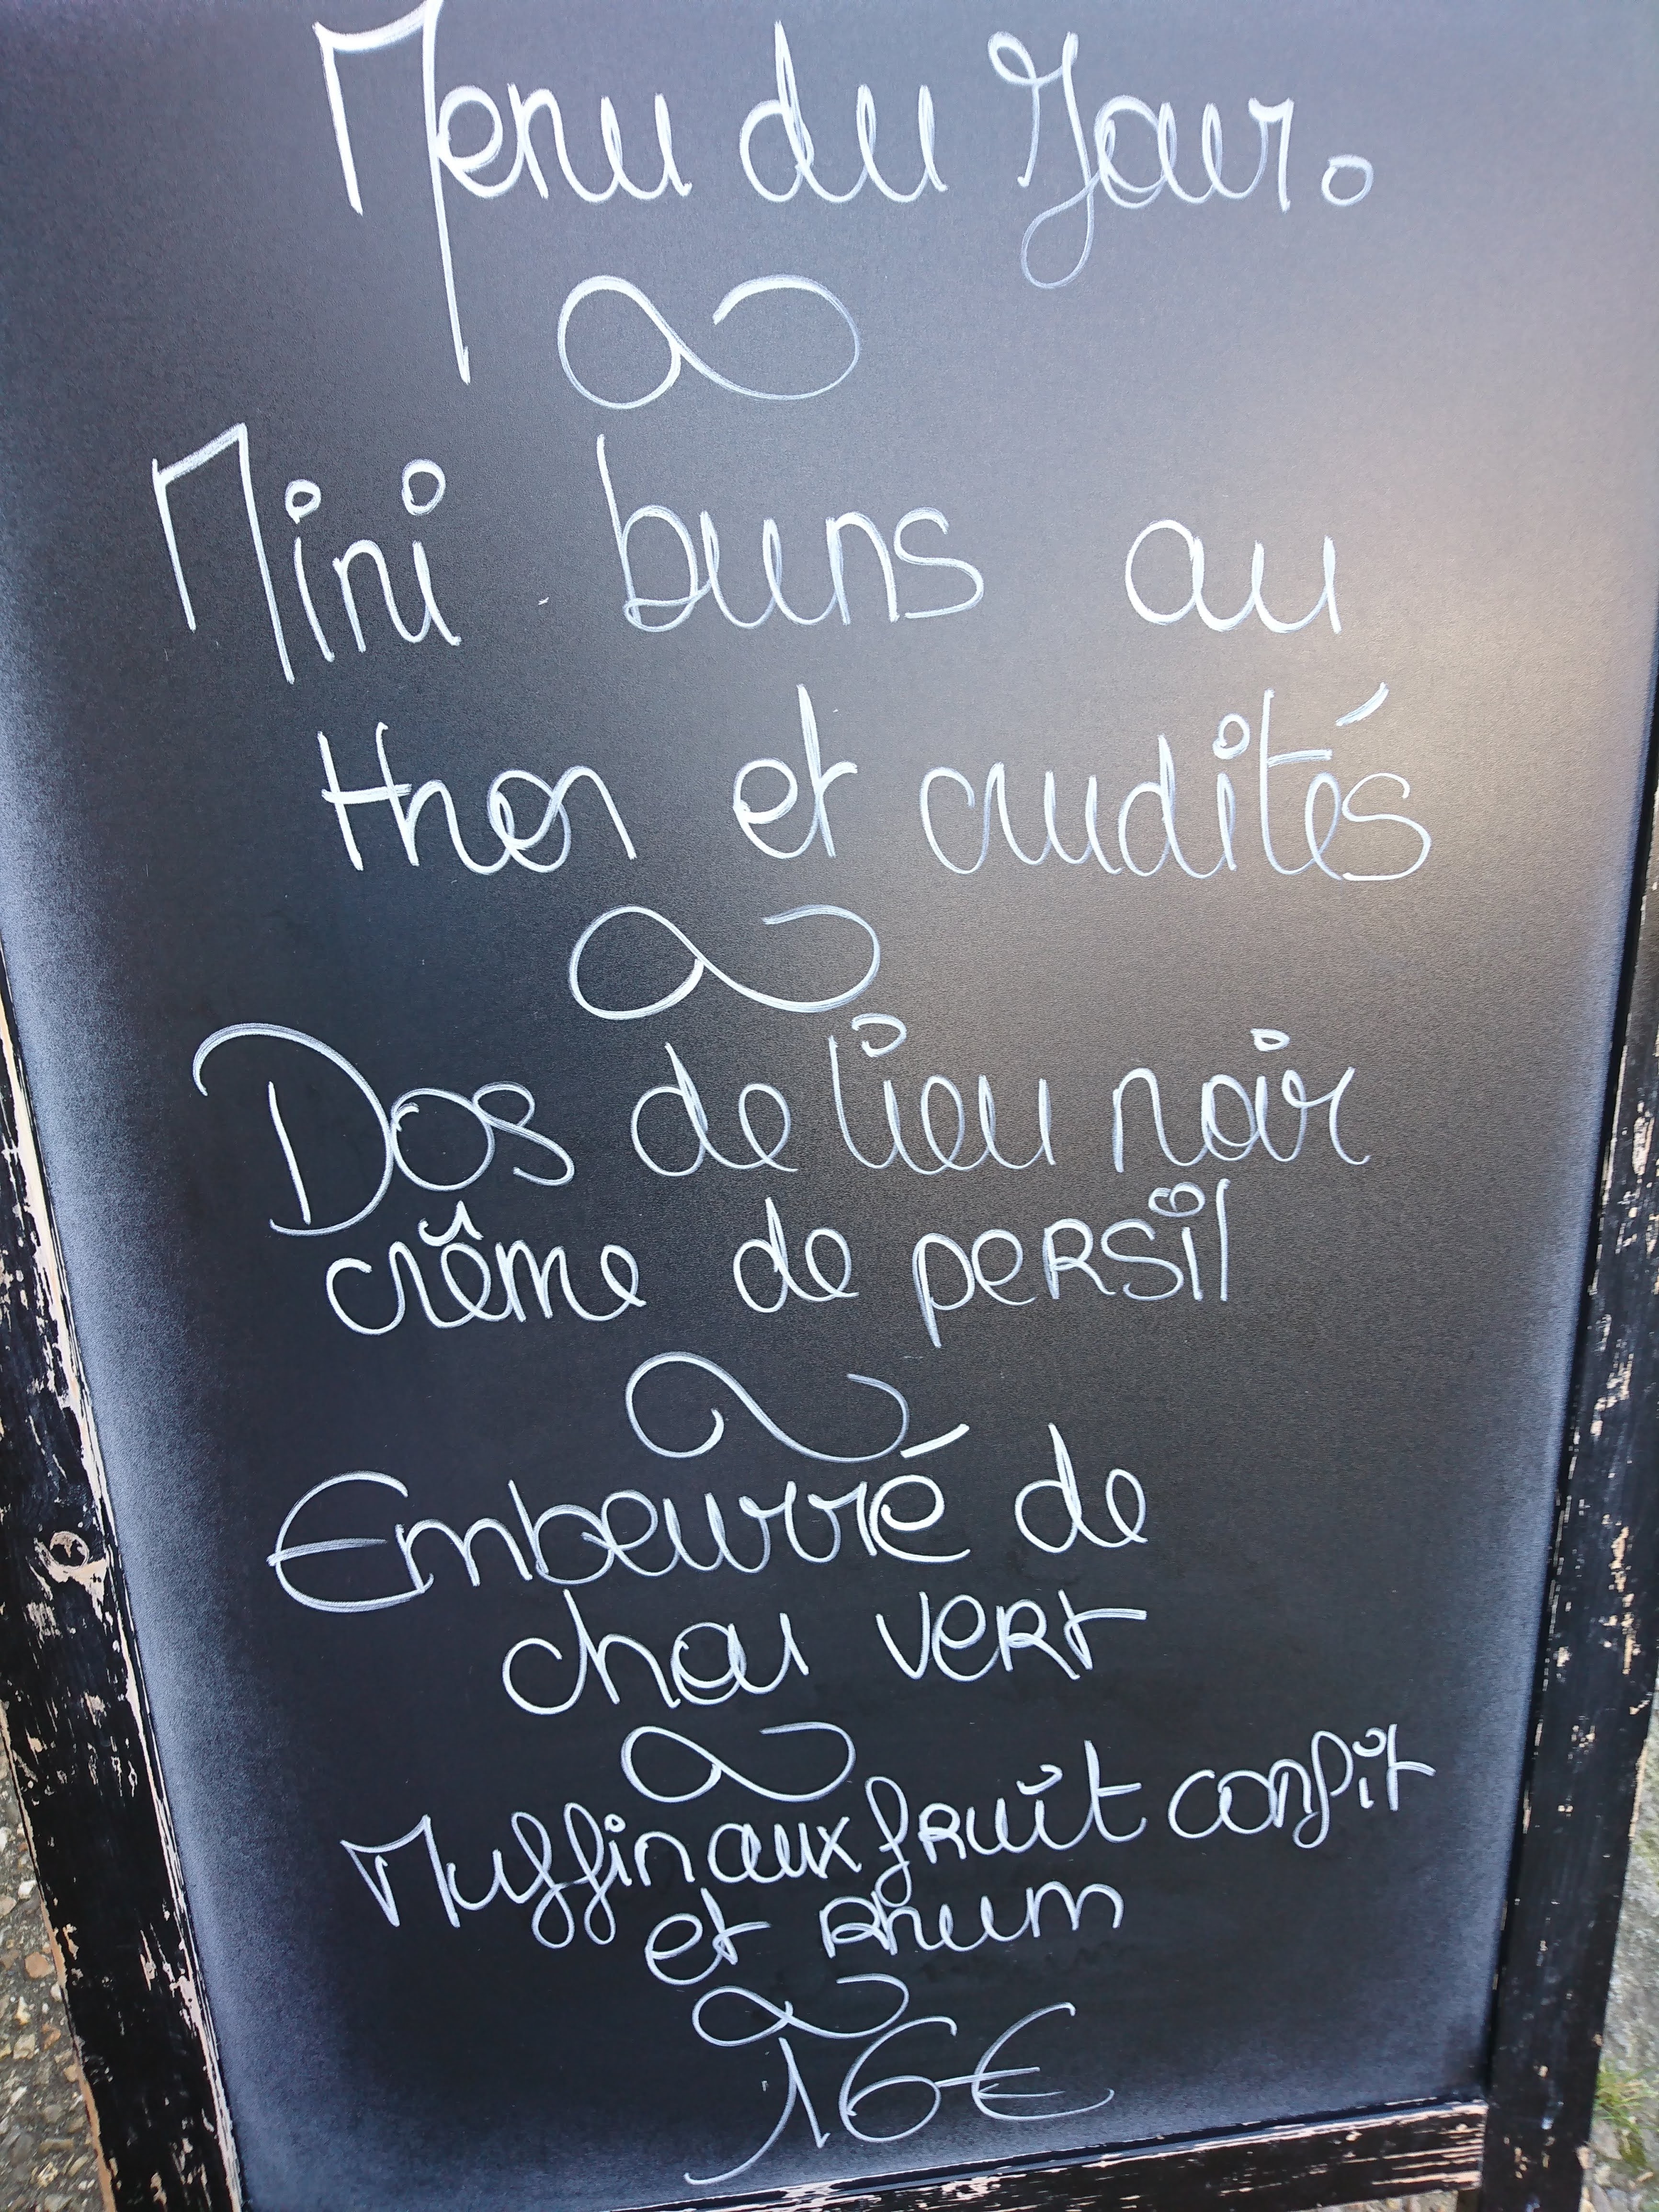 Menu du Jour.
Mini buns au
thon et crudités
Dos de lieu noir
crême de persil
Embeurré de
chou vert
Muffin aux fruit confit
et Rhum
16€